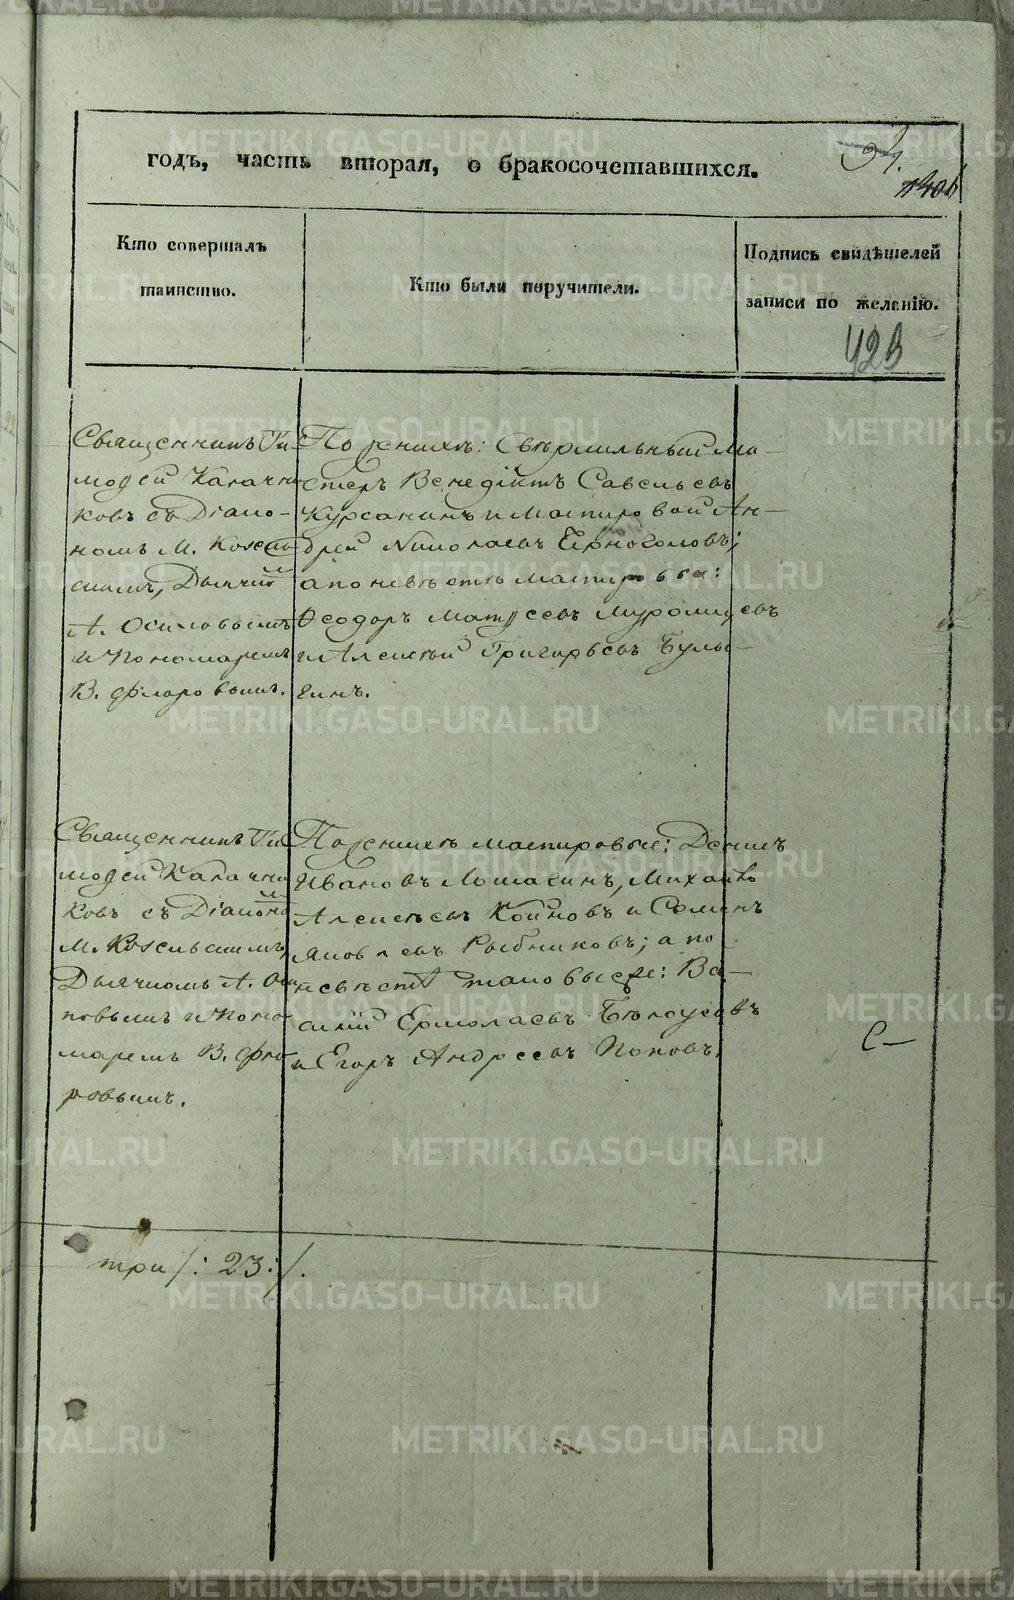 годъ, часть вторая, о бракосочетавшихся.
Кто совершалъ
таинство.
Кто были поручители.
Подпись свидѣтелей
записи по желанію.
423
Священникъ Ти-
мофей Калачни-
ковъ съ Діако-
номъ М.
А. Осиповымъ
и Пономаремъ
В. Флоровымъ.
По женихѣ: Сверлильный ма-
стеръ Венедиктъ Савельевъ
Курсанинъ и мастеровой Ан-
дрей Николаевъ Черноголовъ;
а по невѣстѣ мастеровые:
Ѳеодоръ Матѵеевъ Муромцевъ
и Алексѣй Григорьевъ Булы-
гинъ.
Священникъ Ти-
мофей Калачни-
ковъ съ Діакономъ
М.
Дьячкомъ А. Оси-
повымъ и Поно-
маремъ В. Фло-
ровымъ.
По женихѣ мастеровые: Денисъ
Ивановъ Лошагинъ, Михайло
Алексѣевъ Коиновъ и Семенъ
Яковлевъ Рыбниковъ; а по
невѣстѣ таковыеже: Ва-
силій Ермолаевъ Бѣлоусовъ
и Егоръ Андреевъ Поповъ.
три /: 23 :/.
METRIKI.GASO-URAL.RU